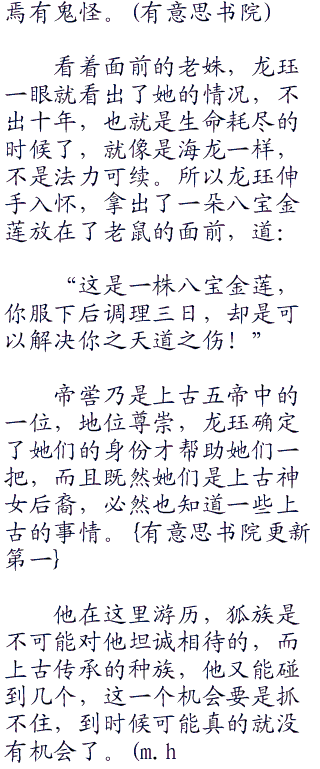 焉有鬼怪。(有意思书院)
看着面前的老姝，龙珏
一眼就看出了她的情况，不
出十年，也就是生命耗尽的
时候了，就像是海龙一样，
不是法力可续。所以龙珏伸
手入怀，拿出了一朵八宝金
莲放在了老鼠的面前，道：
“这是一株八宝金莲，
你服下后调理三日，却是可
以解决你之天道之伤！”
帝喾乃是上古五帝中的
一位，地位尊崇，龙珏确定
了她们的身份才帮助她们一
把，而且既然她们是上古神
女后裔，必然也知道一些上
古的事情。{有意思书院更新
第一}
他在这里游历，狐族是
不可能对他坦诚相待的，而
上古传承的种族，他又能碰
到几个，这一个机会要是抓
不住，到时候可能真的就没
有机会了。(m.h